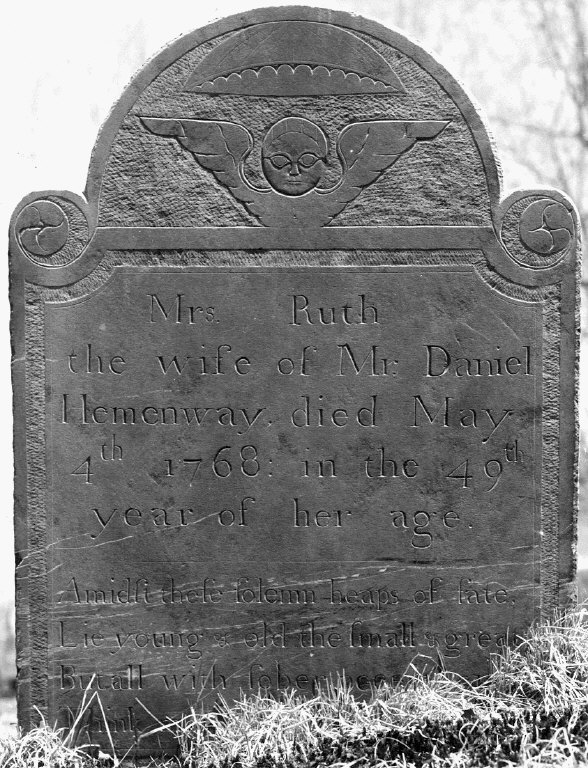 Mrs. Ruth
the wife of Mr. Daniel
Hemenway. died May
4th 1768: in the 49th
year of her age.
Amidſt theſe ſolemn heaps of fate,
Lie young & old the ſmall & great
But all with ſober